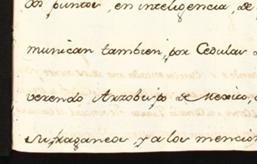 dos puntos, en inteligencia, de
munican tambien, por Cedulas d
verendo Arzobispo de Mexico,
sufraganea y a los mencio